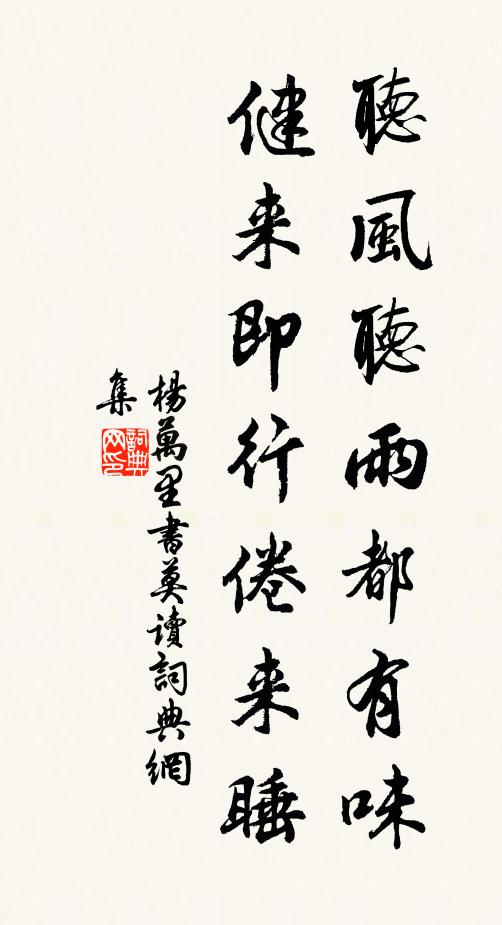 聽風聽雨都有味
健来即行倦来睡
楊萬里書莫讀詞典網
集
詞典網印